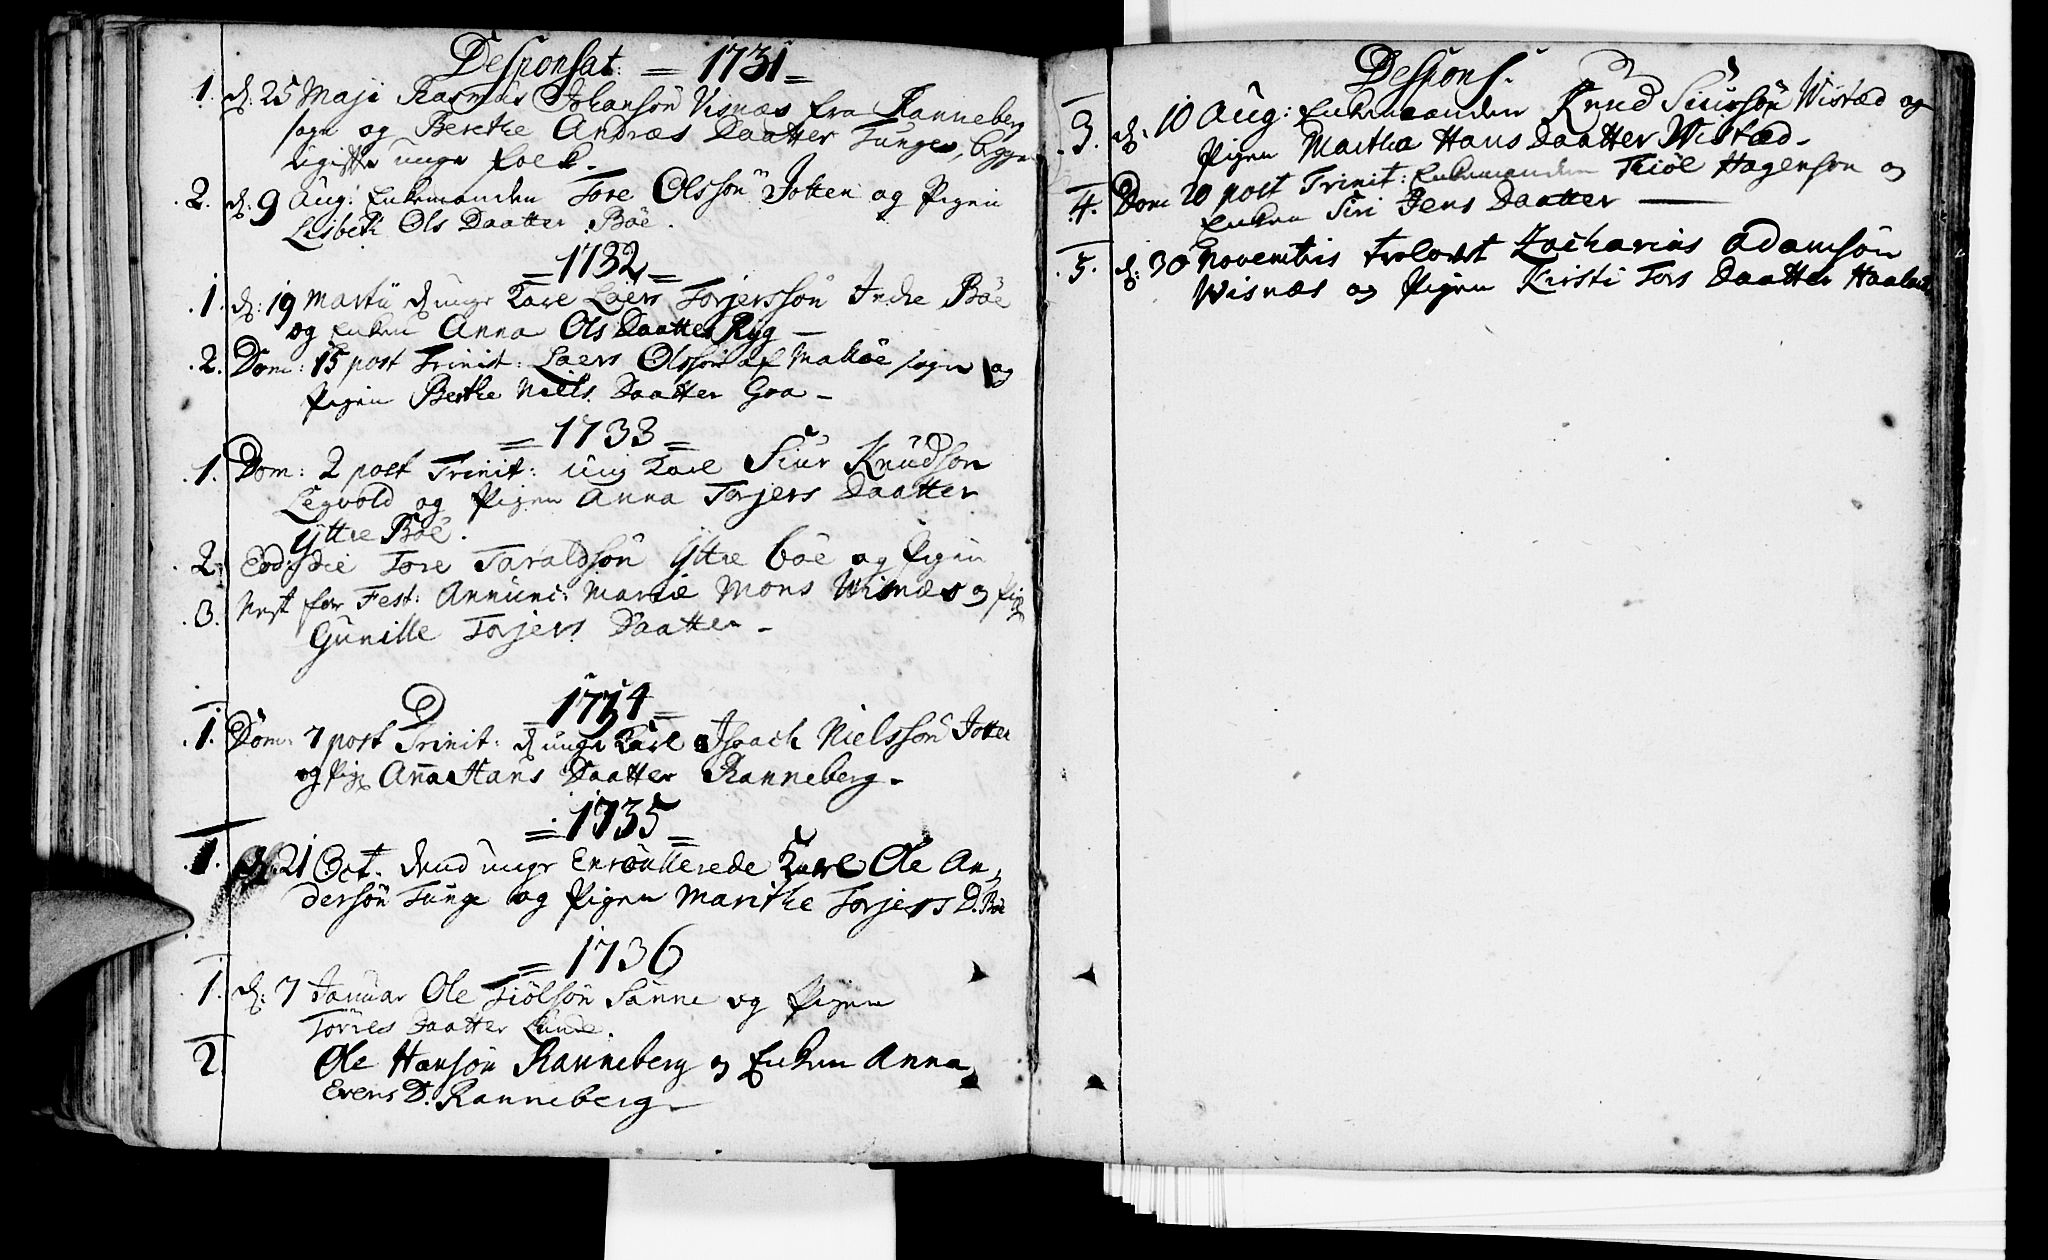 Desponsat: = 1731 =
1. d: 25 Maji Rasmus Johansön Visnæs fra Ranneberg
sogn og Berethe Andræs Daatter Tunge, begge
ugifte unge folk.
2. d: 9 Aug: Enkemanden Tore Olssön Jotten og Pigen
Lisbeth Ols Daatter Böe.
= 1732 =
1. d: 19 Martii d unge Karl Laers Torjerssön Indre Böe
og Enken Anna Ols Daatter Ryg
2. Dom: 15 post Trinit: Laers Olssön af sogn og
Pigen Berthe Niels Daatter Goa -
= 1733 =
1. Dom: 2 post Trinit: ung Karl Siur Knudson
Legvold og Pigen Anna Torjers Daatter
Ÿttre Böe.
2. Eod: die Tore Taraldsön Ÿttre böe og Pigen
3. Nest for Fest: Annunc: Mariæ Mons Wisnæs og Pig
Gunille Torjers Daatter -
= 1734 =
1. Dom: 7 post Trinit: d unge Karl Isaach Nielssön Jotten
og Pig: Anna Hans Daatter Ranneberg -
= 1735 =
1. d. 21 Oct. dend unge Enroullerede Karl Ole An,
dersön Tunge og Pigen Marithe Torjers D. Böe
= 1736
1. d: 7 Januar Ole Tiölsön Sunne og Pigen
Torres Daatter Lunde.
2 Ole Hansön Ranneberg og Enken Anna
Evens D. Ranneberg -
Despons.
3. d: 10 Aug: Enkemanden Knud Siursön Wistæd og
Pigen Martha Hans Daatter Wistæd -
4. Dom 20 post Trinit: Enkemanden Tiöl Hagenson og
Enken Siri Jens Daatter
5. d: 30 Novembris trolovet Zacharias Adamsön
Wisnæs og Pigen Kirsti Tors Daatter